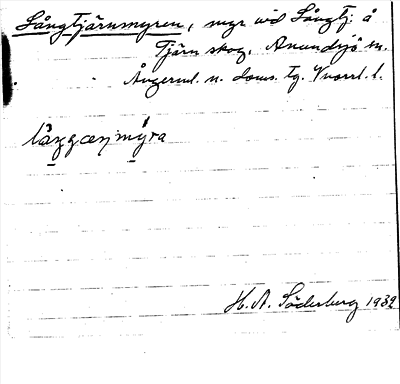 Långtjärnmyren, myr vid Långtj. å
Tjärn skog, Anundsjö sn.
Ångerml. n. doms. tg. Vnorrl. l.
H. A. Söderberg 1932